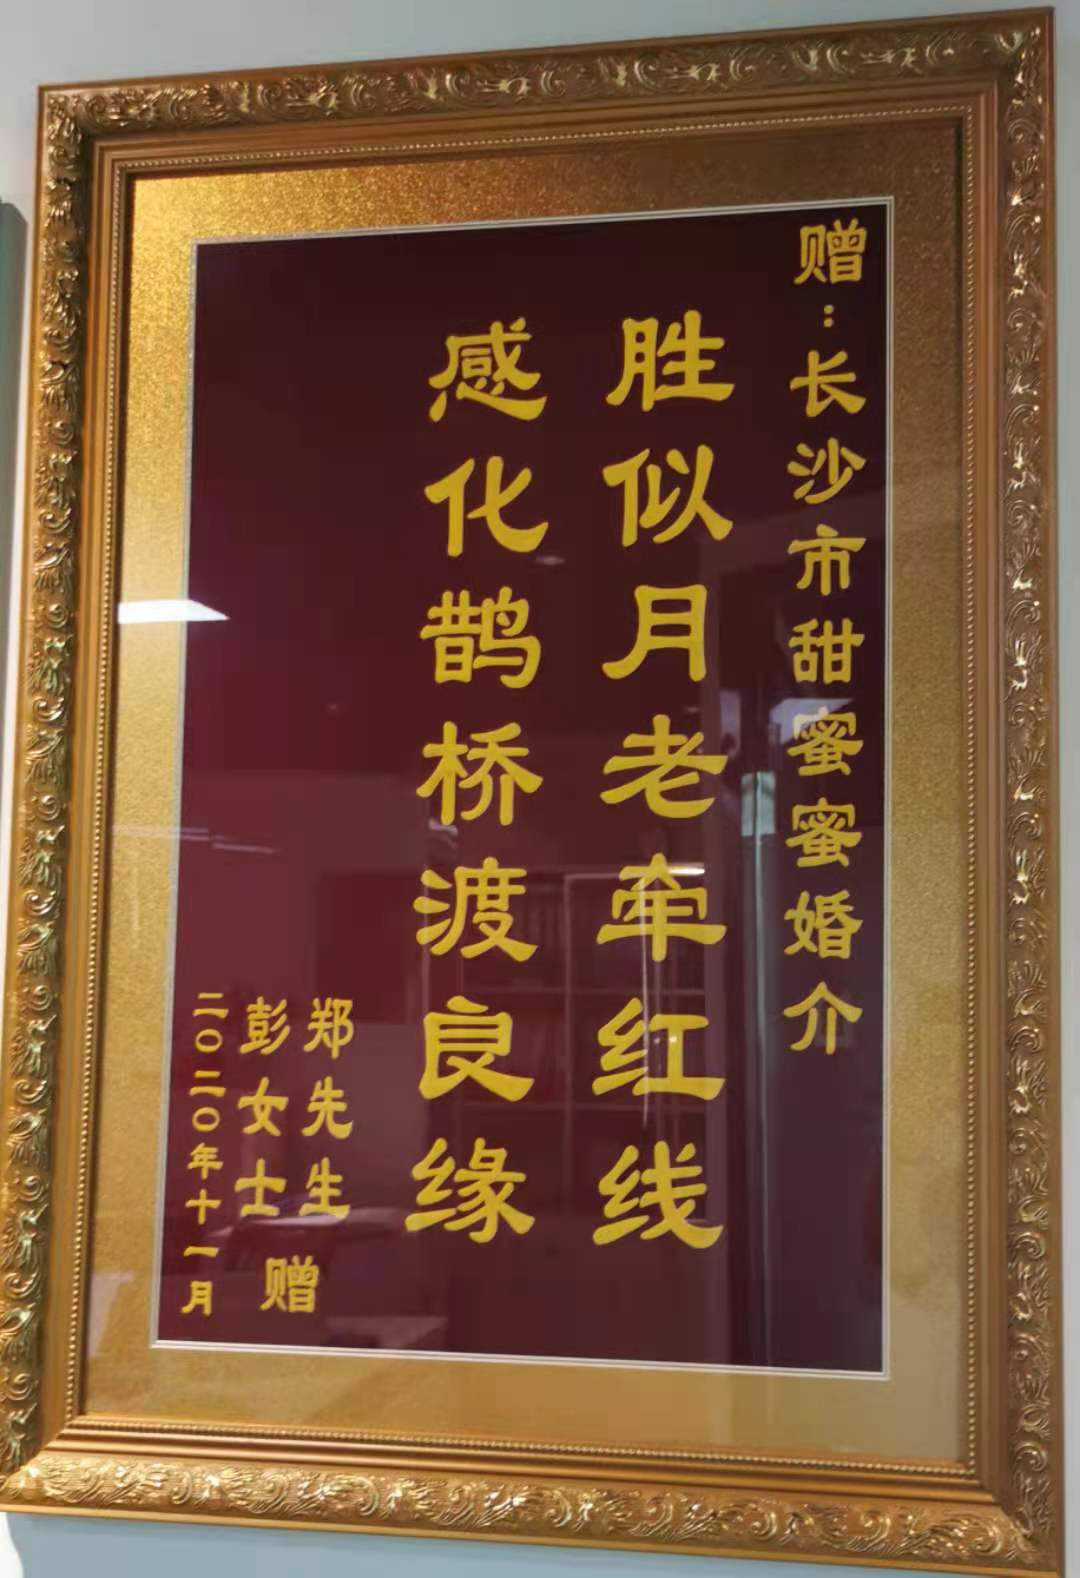 赠：长沙市甜蜜蜜婚介
胜似月老牵红线
感化鹊桥渡良缘
郑先生
彭女士
赠
二〇二〇年十一月